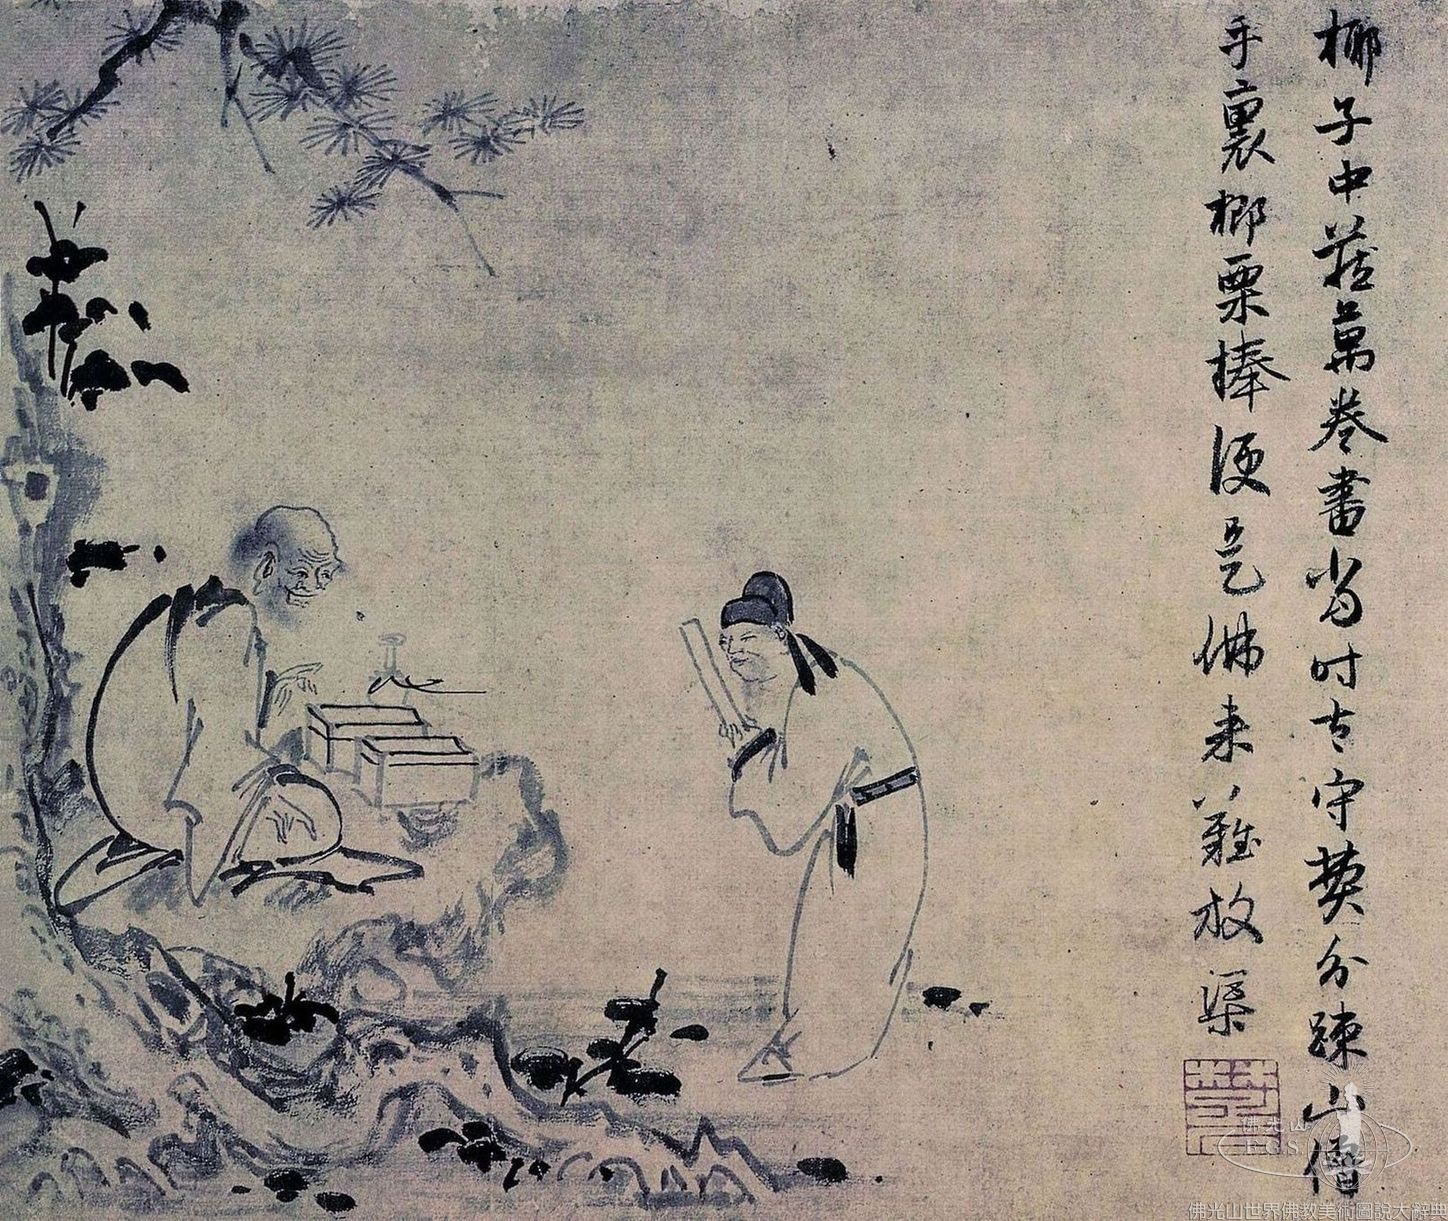 椰子中藏萬卷書當時太守費分疎山僧
手裏榔栗棒便是佛來難放渠
佛光山
佛光山世界佛教美術圖說大辭典